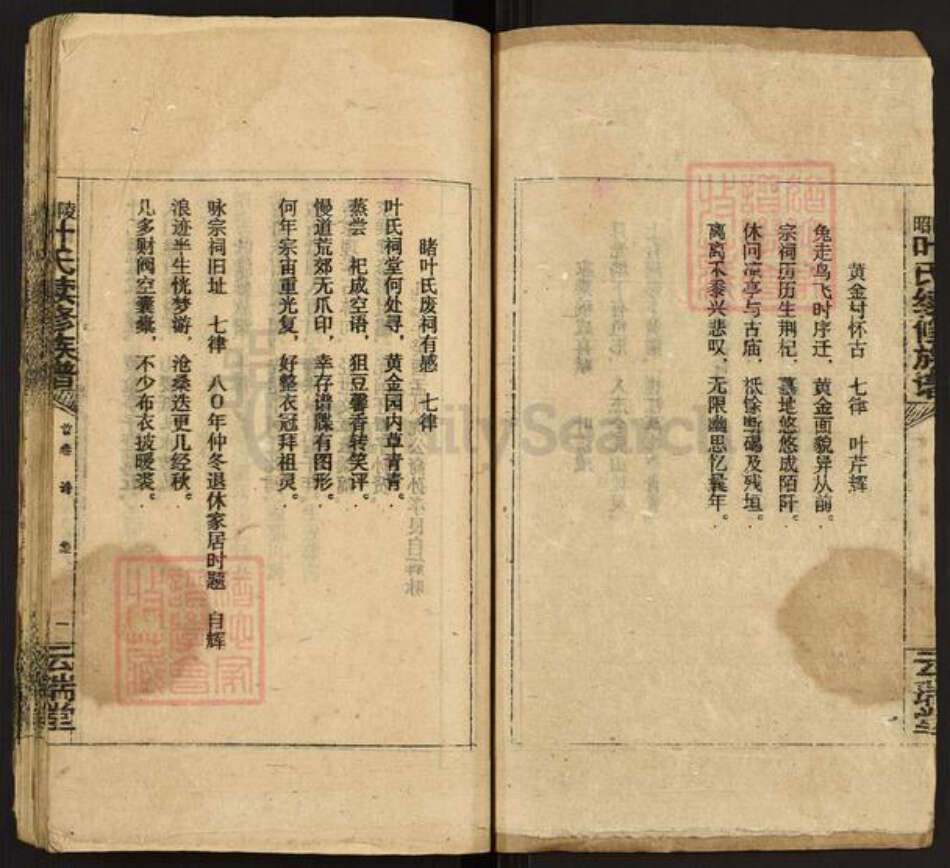 昭
叶氏续修族谱
云瑞堂
黄金村怀古　七律　叶芹辉
兔走鸟飞时序迁，黄金画貌异从前。
宗祠历历生荆杞，墓地悠悠成陌阡。
休问凉亭与古庙，祇馀断碣及残垣。
离离禾黍兴悲叹，无限幽思忆曩年。
睹叶氏废祠有感　七律
叶氏祠堂何处寻，黄金园内草青青。
蒸尝　祀成空语，狙豆馨香转笑评。
慢道荒郊无爪印，幸存谱牒有图形。
何年宗宙重光复，好整衣冠拜祖灵。
咏宗祠旧址　七律　八〇年仲冬退休家居时题　自辉
浪迹半生恍梦游，沧桑迭更几经秋。
几多财阀空囊橐，不少布衣披暖裘。
陵
叶氏续修族谱
首卷　诗
一
云瑞堂
FamilySearch